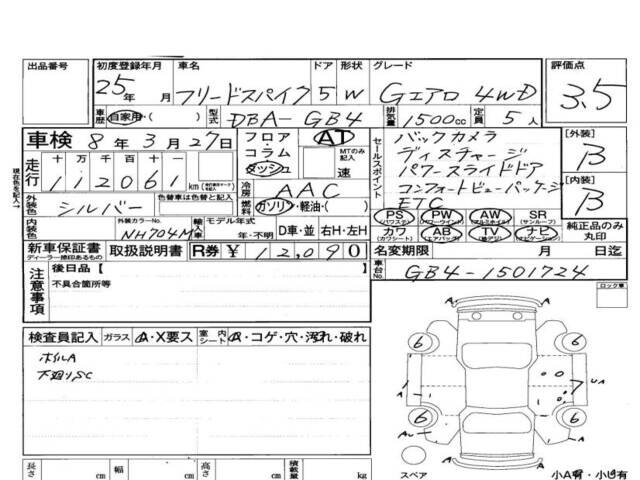 出品番号 初度登録年月 車名 ドア 形状 グレード 評価点
25年 月 フリードスパイク 5 W Gエアロ 4WD 3.5
車歴 自家用・( ) 型式 DBA-GB4 排気量 1500cc 定員 5人
車検 8年3月27日 フロア・コラム・ダッシュ AT MTのみ記入 速
セールスポイント
バックカメラ
ディスチャージ
パワースライドドア
コンフォートビューパッケージ
ETC
[外装] B
[内装] B
走行 十 万 千 百 十 一
112061 km
冷房 AAC
燃料 ガソリン・軽油・( )
外装色 シルバー 色替車は色替と記入
現在色を記入→
内装色 外装カラーNo. NH704M 輸入車 モデル年式 年・不明 D車・並 右H・左H
PS (パワステ) PW (パワーウインド) AW (アルミホイル) SR (サンルーフ)
カワ (カワシート) AB (エアバック) TV (地デジ) ナビ (ナビゲーション)
純正品のみ丸印
新車保証書 ディーラー捺印あるもの 取扱説明書 R券 ¥12,090
名変期限 月 日迄
車台No. GB4-1501724
注意事項 後日品[ ]
不具合箇所等
ロック車
検査員記入 ガラス A・X要ス 室内シート A・コゲ・穴・汚れ・破れ
ホイルA
下廻りSC
A A
6 6
A UA
6 6
AW A
スペア A A 小A有・小U有
長さ cm 幅 cm 高さ cm 積載量 kg